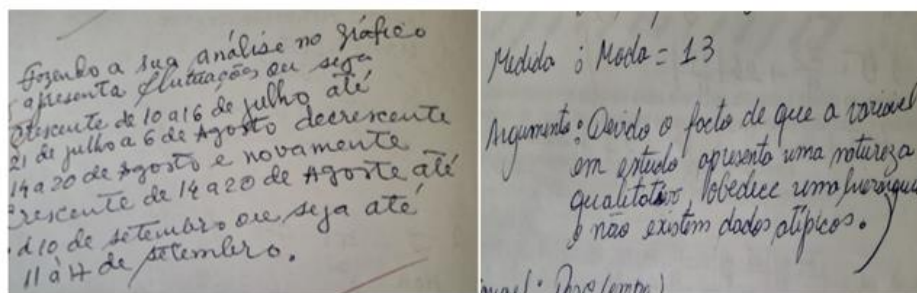 Fazendo a sua análise no gráfico
apresenta flutuações ou seja
crescente de 10 a 16 de julho até
31 de julho a 6 de Agosto decrescente
14 a 20 de Agosto e novamente
crescente de 14 a 20 de Agosto até
10 de setembro ou seja até
11 à 17 de setembro.
Medida : Moda = 13
Argumento : Devido o facto de que a variável
em estudo apresenta uma natureza
qualitativa, obedece uma hierarquia
e não existem dados atípicos.